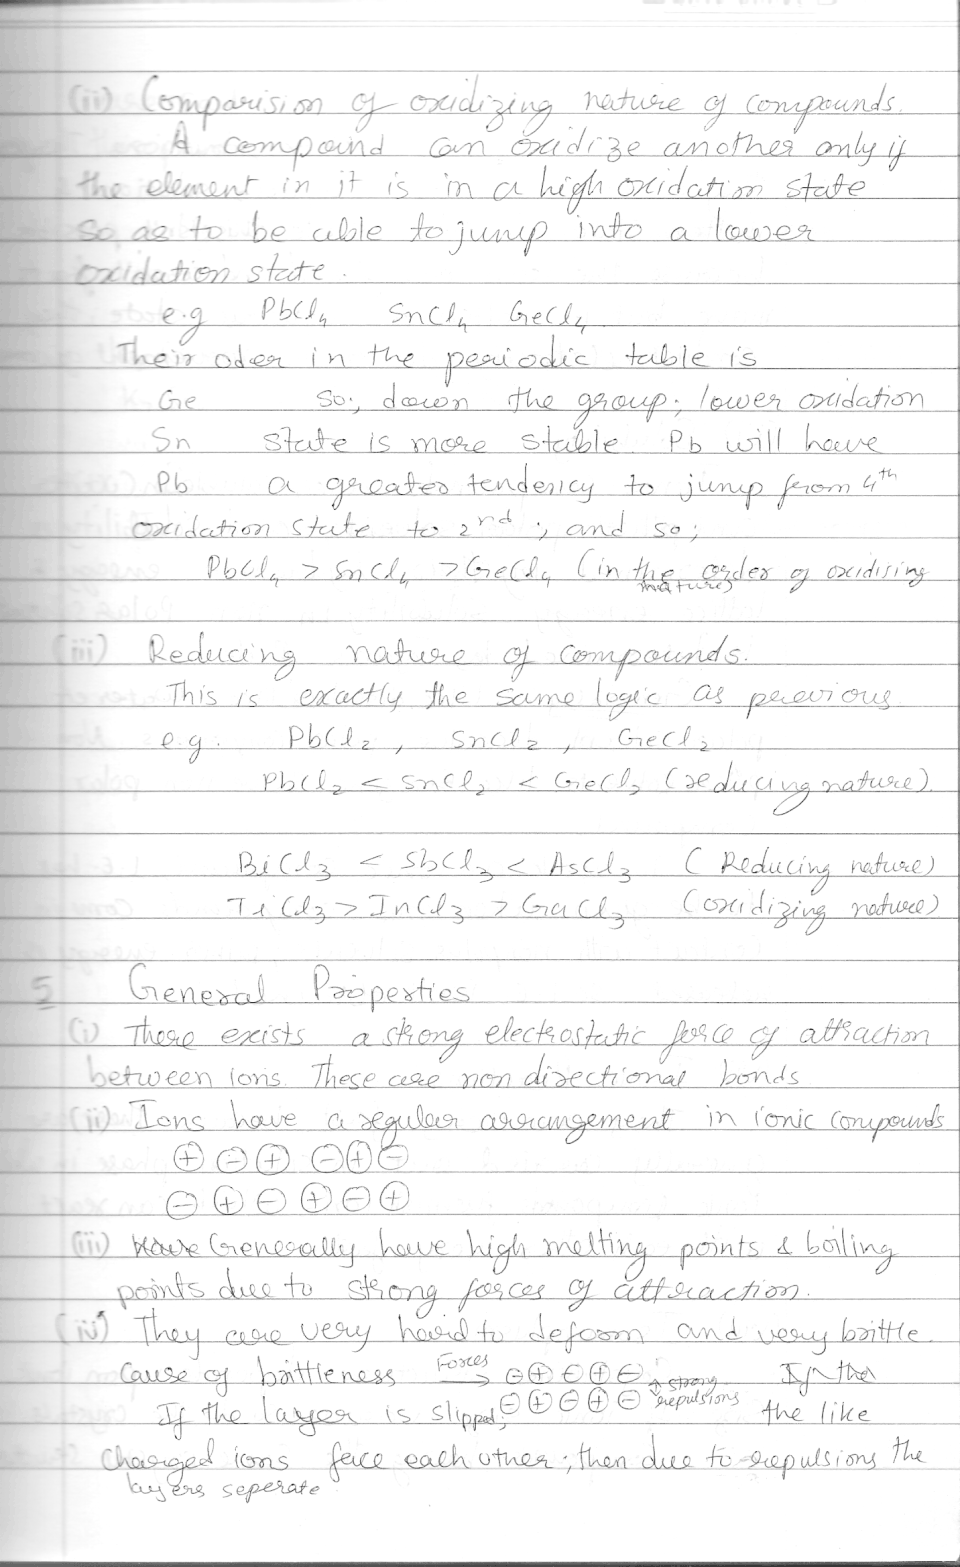 (ii) Comparision of oxidizing nature of compounds.
A compound can oxidize another only if
the element in it is in a high oxidation state
so as to be able to jump into a lower
oxidation state.
e.g PbCl₄ SnCl₄ GeCl₄
Their oder in the periodic table is
Ge so; down the group; lower oxidation
Sn state is more stable. Pb will have
Pb a greater tendency to jump from 4th
oxidation state to 2nd; and so;
PbCl₄ > SnCl₄ > GeCl₄ (in the order of oxidising
nature)
(iii) Reducing nature of compounds.
This is exactly the same logic as previous
e.g. PbCl₂, SnCl₂, GeCl₂
PbCl₂ < SnCl₂ < GeCl₂ (reducing nature).
BiCl₃ < SbCl₃ < AsCl₃ (Reducing nature)
TlCl₃ > InCl₃ > GaCl₃ (oxidizing nature)
5 General Properties
(i) There exists a strong electrostatic force of attraction
between ions. These are non directional bonds
(ii) Ions have a regular arrangement in ionic compounds
⊕ ⊖ ⊕ ⊖ ⊕ ⊖
⊖ ⊕ ⊖ ⊕ ⊖ ⊕
(iii) Have Generally have high melting points & boiling
points due to strong forces of attraction.
(iv) They are very hard to deform and very brittle.
Cause of brittleness Forces → ⊖ ⊕ ⊖ ⊕ ⊖ strong If the
If the layer is slipped, ⊖ ⊕ ⊖ ⊕ ⊖ repulsions the like
charged ions face each other; then due to repulsions the
layers seperate